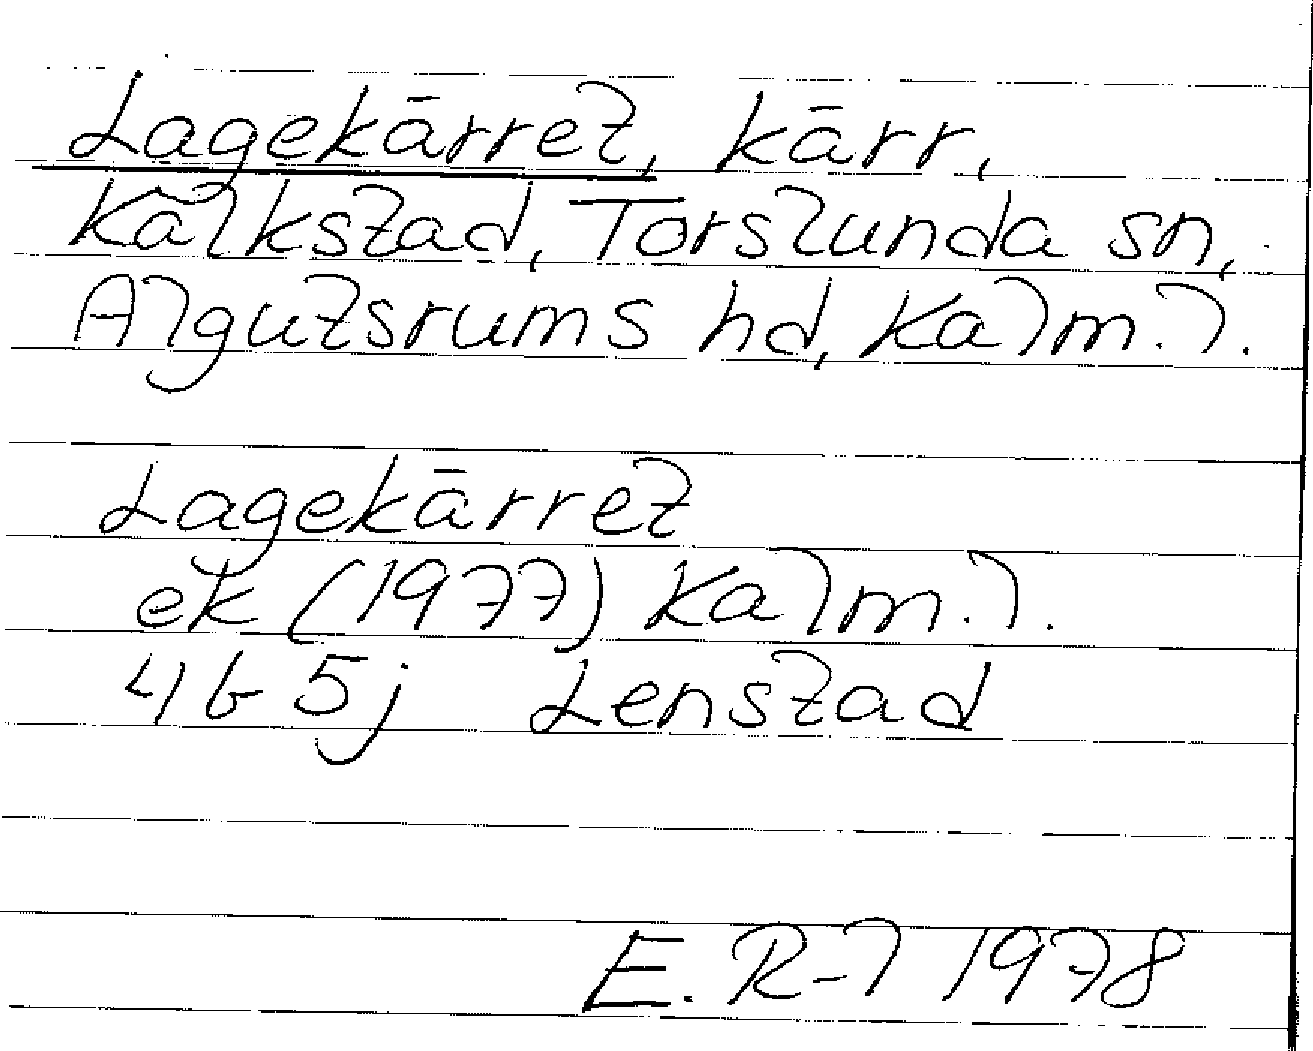 Lagekärret, kärr,
Kalkstad, Torslunda sn,
Algutsrums hd, Kalm. l.
Lagekärret
ek (1977) Kalm. l.
4G 5j Lenstad
E. R-l 1978